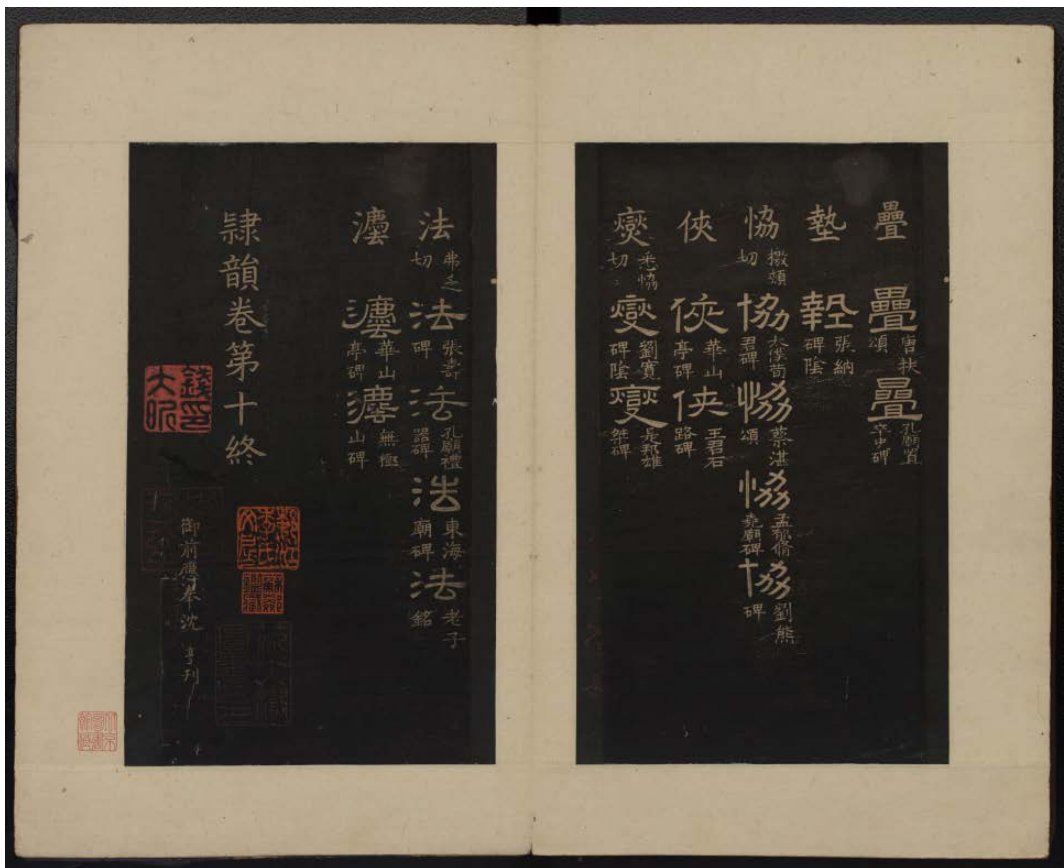 疊 疊 唐扶頌 疊 孔廟置卒史碑
墊 張納碑陰
恊 檄頰切 協 太僕荀君碑 恊 蔡湛頌 恊 孟郁脩堯廟碑 協 劉熊碑
俠 俠 華山亭碑 俠 王君石路碑
燮 悉恊切 燮 劉寬碑陰 燮 是邦雄桀碑
法 弗乏切 法 張壽碑 法 孔廟禮器碑 法 東海廟碑 法 老子銘
灋 灋 華山亭碑 灋 無極山碑
隷韻卷第十終
御前應奉沈亨刊
錢大昕印